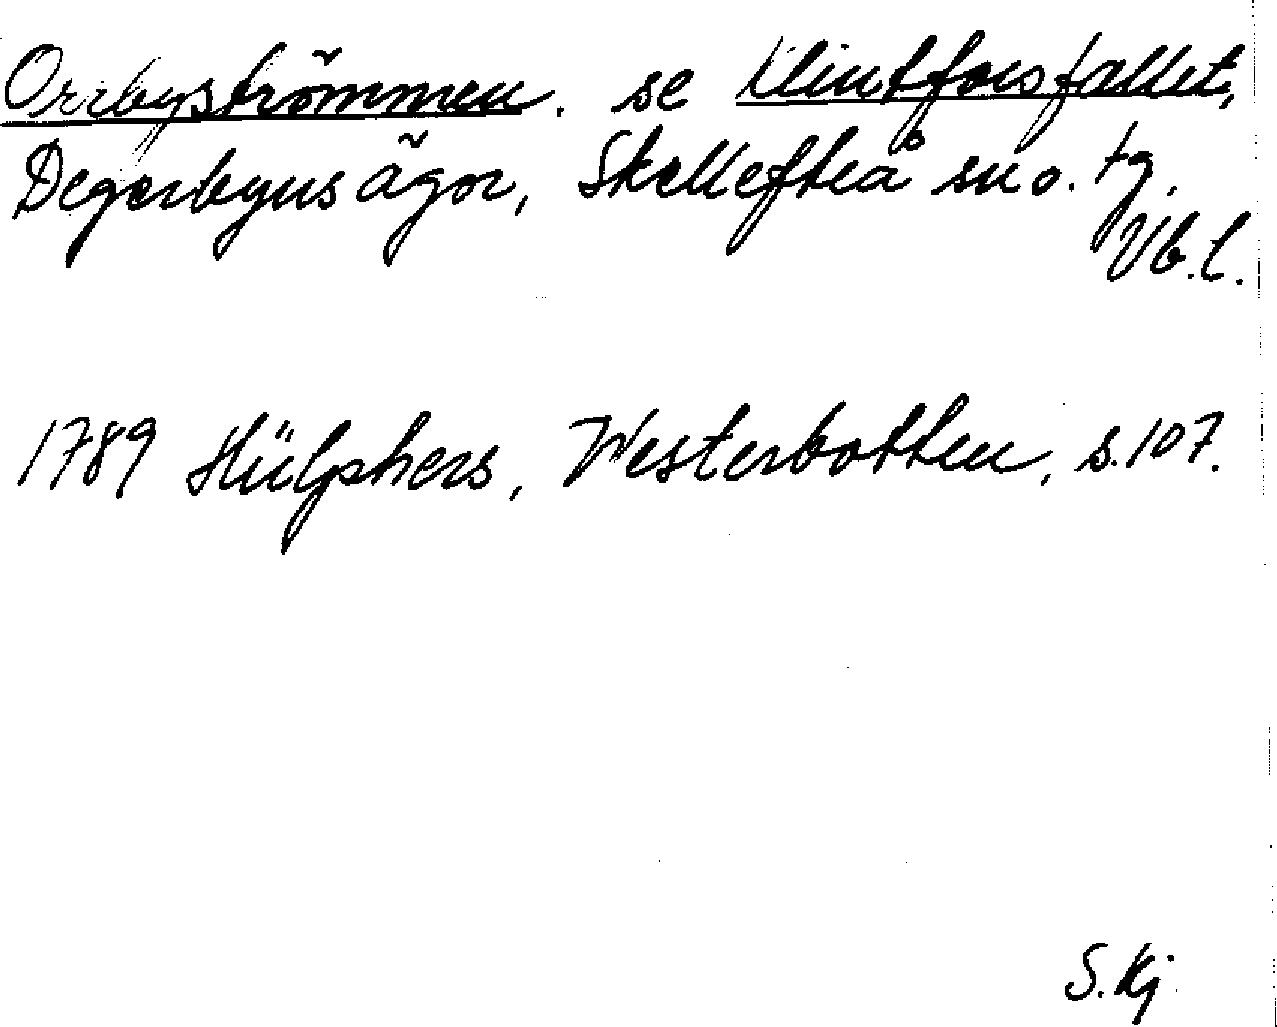 Orrbyströmmen. se Klintforsfallet,
Degerbyns ägor, Skellefteå sn o. tg.
Vb.l.
1789 Hülphers, Westerbotten, s. 107.
S. Kj